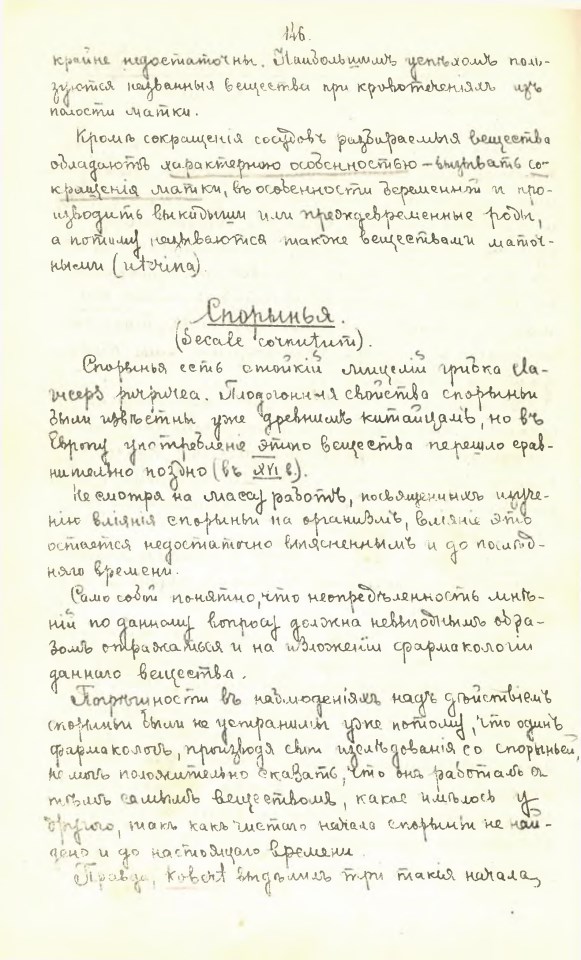 146.
крайне недостаточны. Наибольшимъ успѣхомъ поль-
зуются названныя вещества при кровотеченіяхъ изъ
полости матки.
Кромѣ сокращенія сосудовъ разбираемыя вещества
обладаютъ характерною особенностью – вызывать со-
кращенія матки, въ особенности беременной и про-
изводить выкидыши или преждевременные роды,
а потому называются также веществами маточ-
ными (uterina)
Спорынья.
(Secale cornutum).
Спорынья есть стойкій мицелій грибка Cla-
viceps purpurea. Плодогонныя свойства спорыньи
были извѣстны уже древнимъ китайцамъ, но въ
Европу употребленіе этого вещества перешло срав-
нительно поздно (въ XVI в.).
Не смотря на массу работъ, посвященныхъ изуче-
нію вліянія спорыньи на организмъ, вліяніе это
остается недостаточно выясненнымъ и до послѣд-
няго времени.
Само собой понятно, что неопредѣленность мнѣ-
ній по данному вопросу должна невыгоднымъ обра-
зомъ отражаться и на изложеніи фармакологіи
даннаго вещества.
Погрѣшности въ наблюденіяхъ надъ дѣйствіемъ
спорыньи были не устранимы уже потому, что одинъ
фармакологъ, производя свои изслѣдованія со спорыньей,
не могъ положительно сказать, что онъ работалъ съ
тѣмъ самымъ веществомъ, какое имѣлось у
другого, такъ какъ чистаго начала спорыньи не най-
дено и до настоящаго времени.
Правда, Kobert выдѣлилъ три такія начала,